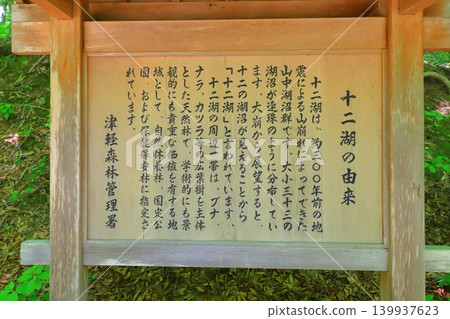 十二湖の由来
十二湖は、約三〇〇年前の地
震による山崩れによってできた
山中湖沼群です。大小三十三の
湖沼が連珠のように分布してい
ます。大崩から展望すると、
十二の湖沼が見えることから
「十二湖」と言われています。
十二湖の周辺一帯は、ブナ、
ナラ、カツラ等の広葉樹を主体
とした天然林で、学術的にも景
観的にも貴重な価値を有する地
域として、自然休養林、国定公
園、および保健保安林に指定さ
れています。
津軽森林管理署
139937623